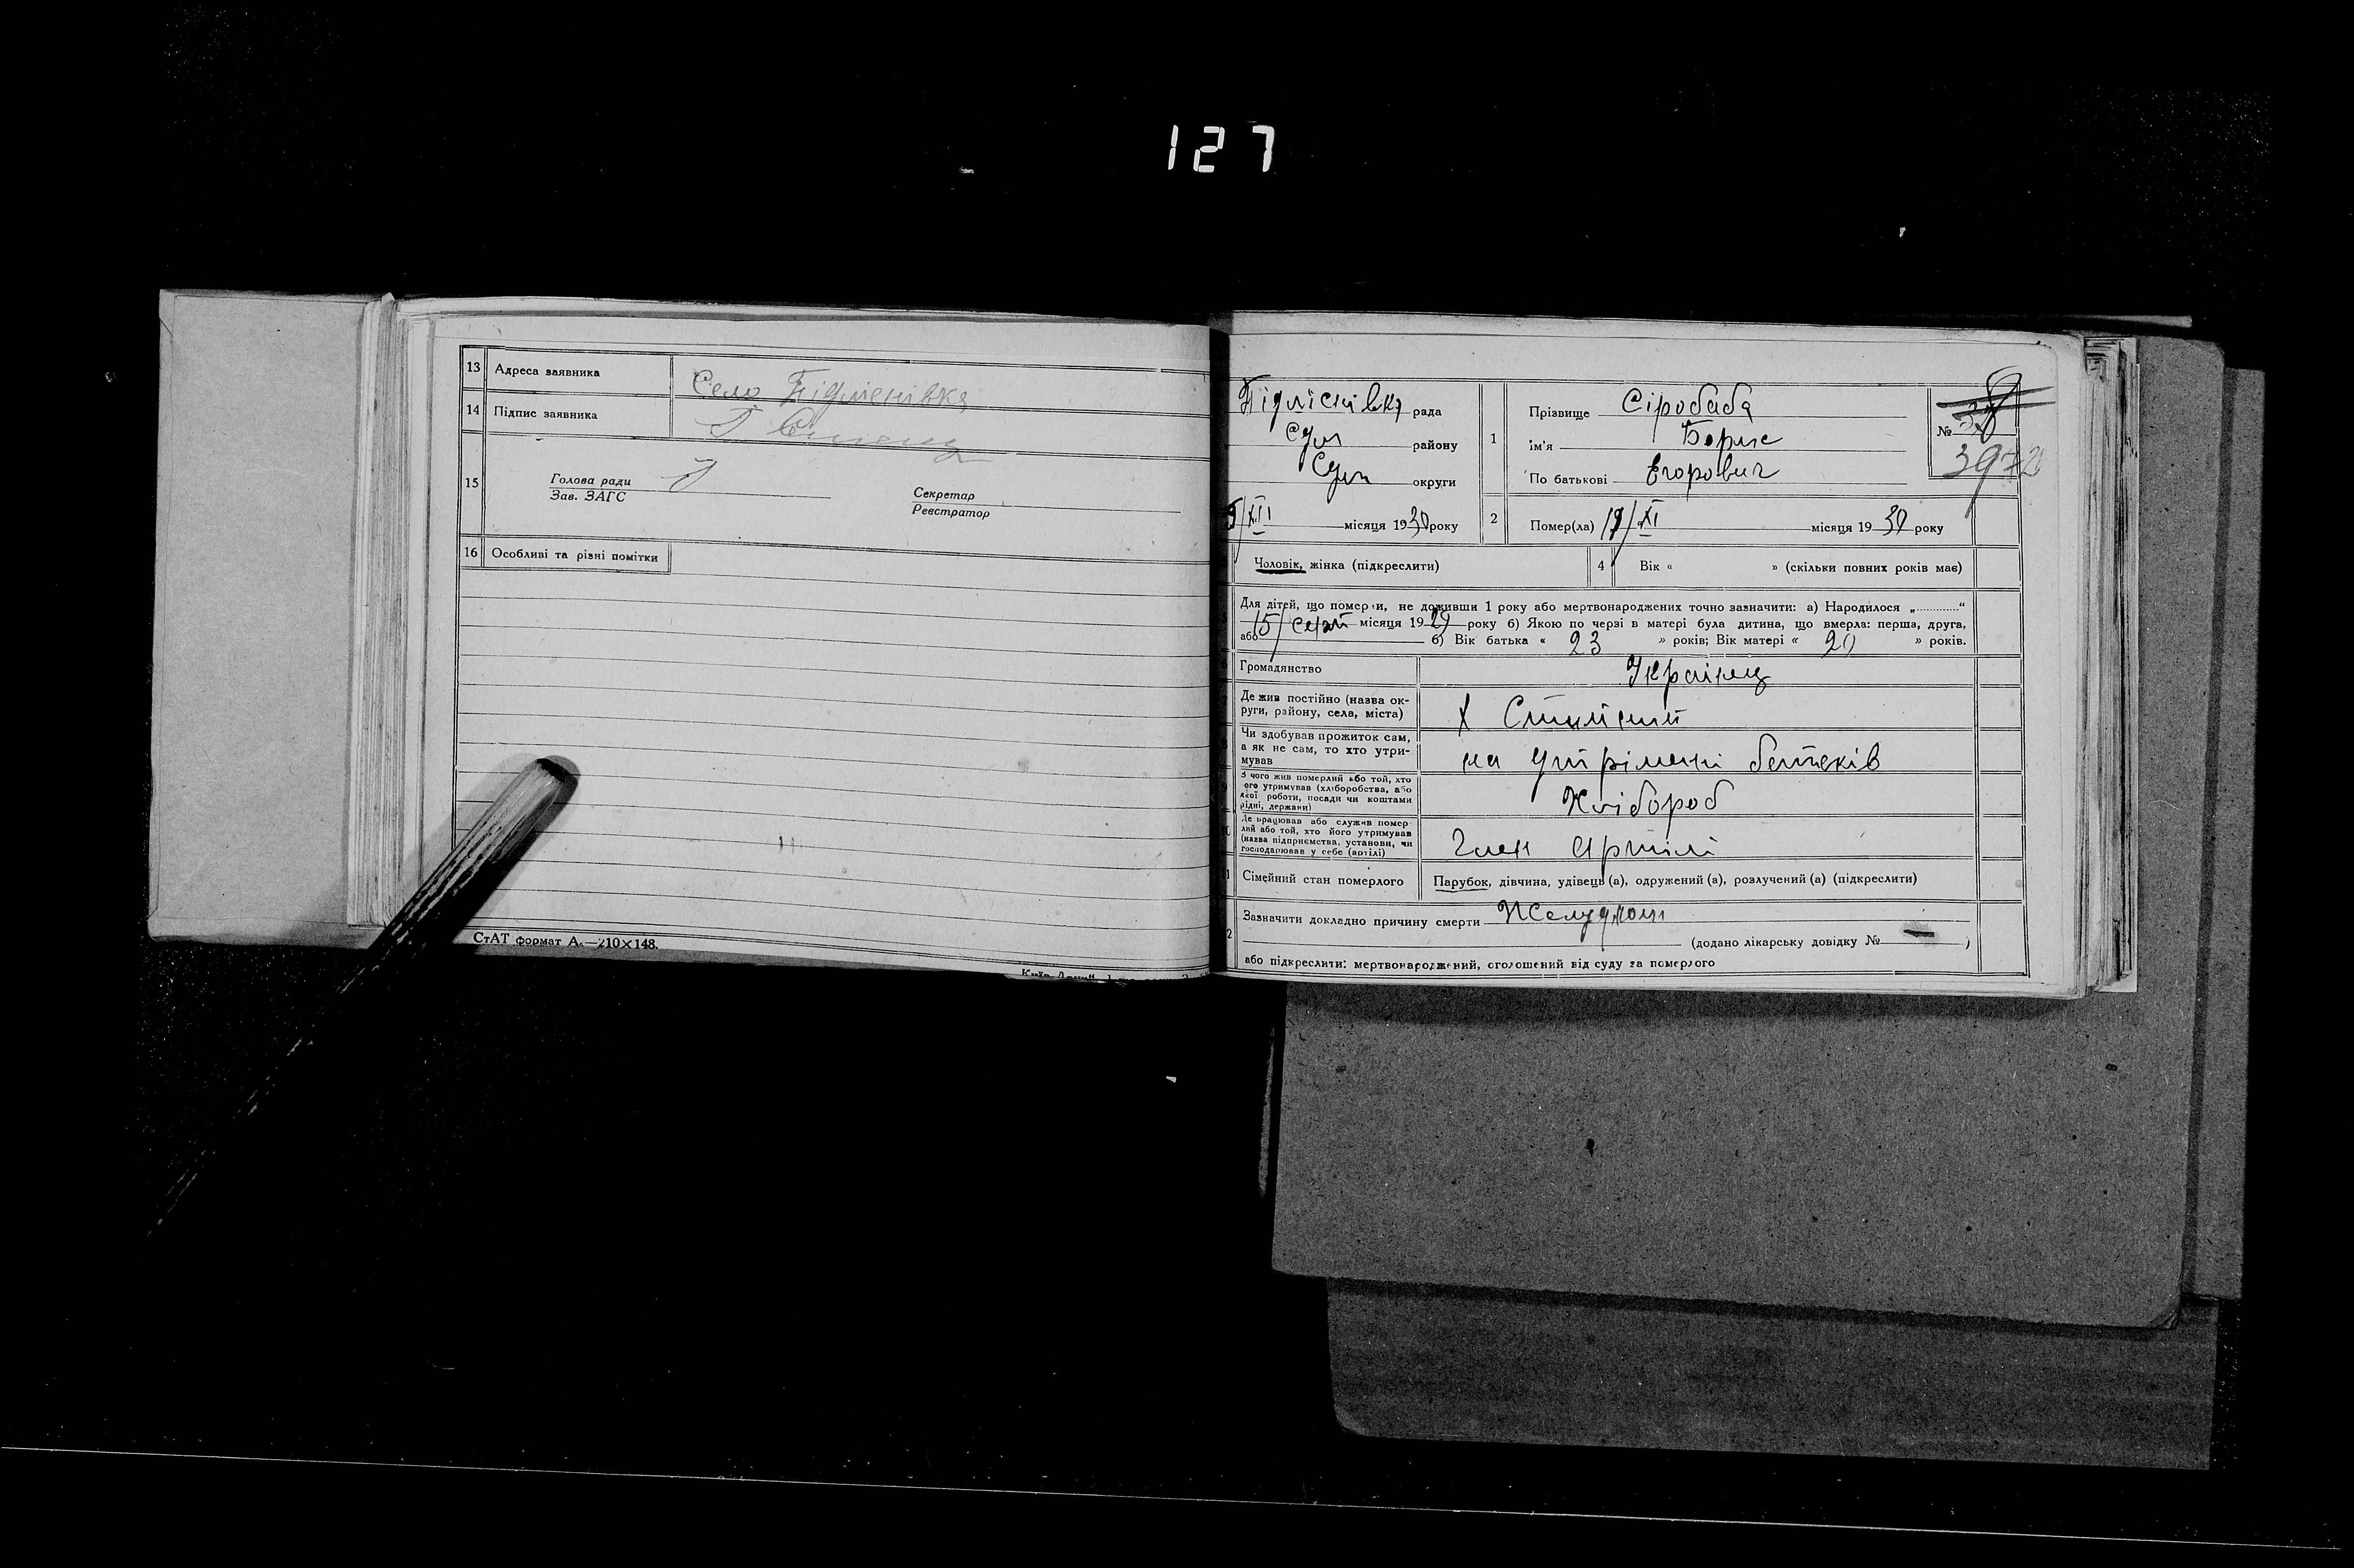 127
13 Адреса заявника Село Підлісківка
14 Підпис заявника
15 Голова ради
Зав. ЗАГС
Секретар
Реєстратор
16 Особливі та різні помітки
СтАТ формат А₅—210×148.
Підліснівка рада
Сум району
Сум округи
/XII місяця 1930 року
1 Прізвище Сіробаба
ім'я Борис
По батькові Егорович
№ 38
3972
2 Помер(ла) 19/XI місяця 1930 року
Чоловік, жінка (підкреслити)
4 Вік « » (скільки повних років має)
Для дітей, що померли, не доживши 1 року або мертвонароджених точно зазначити: а) Народилося „............“
15/ серп місяця 1929 року б) Якою по черзі в матері була дитина, що вмерла: перша, друга,
або б) Вік батька « 23 » років; Вік матері « 20 » років.
Громадянство Українец
Де жив постійно (назва ок-
руги, району, села, міста) Х
Чи здобував прожиток сам,
а як не сам, то хто утри-
мував на утрімані батеків
З чого жив померлий або той, хто
ого утримував (хліборобства, або
якої роботи, посади чи коштами
рідні, держави) Хлібороб
Де працював або служив помер
лий або той, хто його утримував
(назва підприємства, установи, чи
господарював у себе (артілі) Член Артілі
Сімейний стан померлого Парубок, дівчина, удівець (а), одружений (а), розлучений (а) (підкреслити)
Зазначити докладно причину смерти Желудком
(додано лікарську довідку № — )
або підкреслити: мертвонароджений, оголошений від суду за померлого